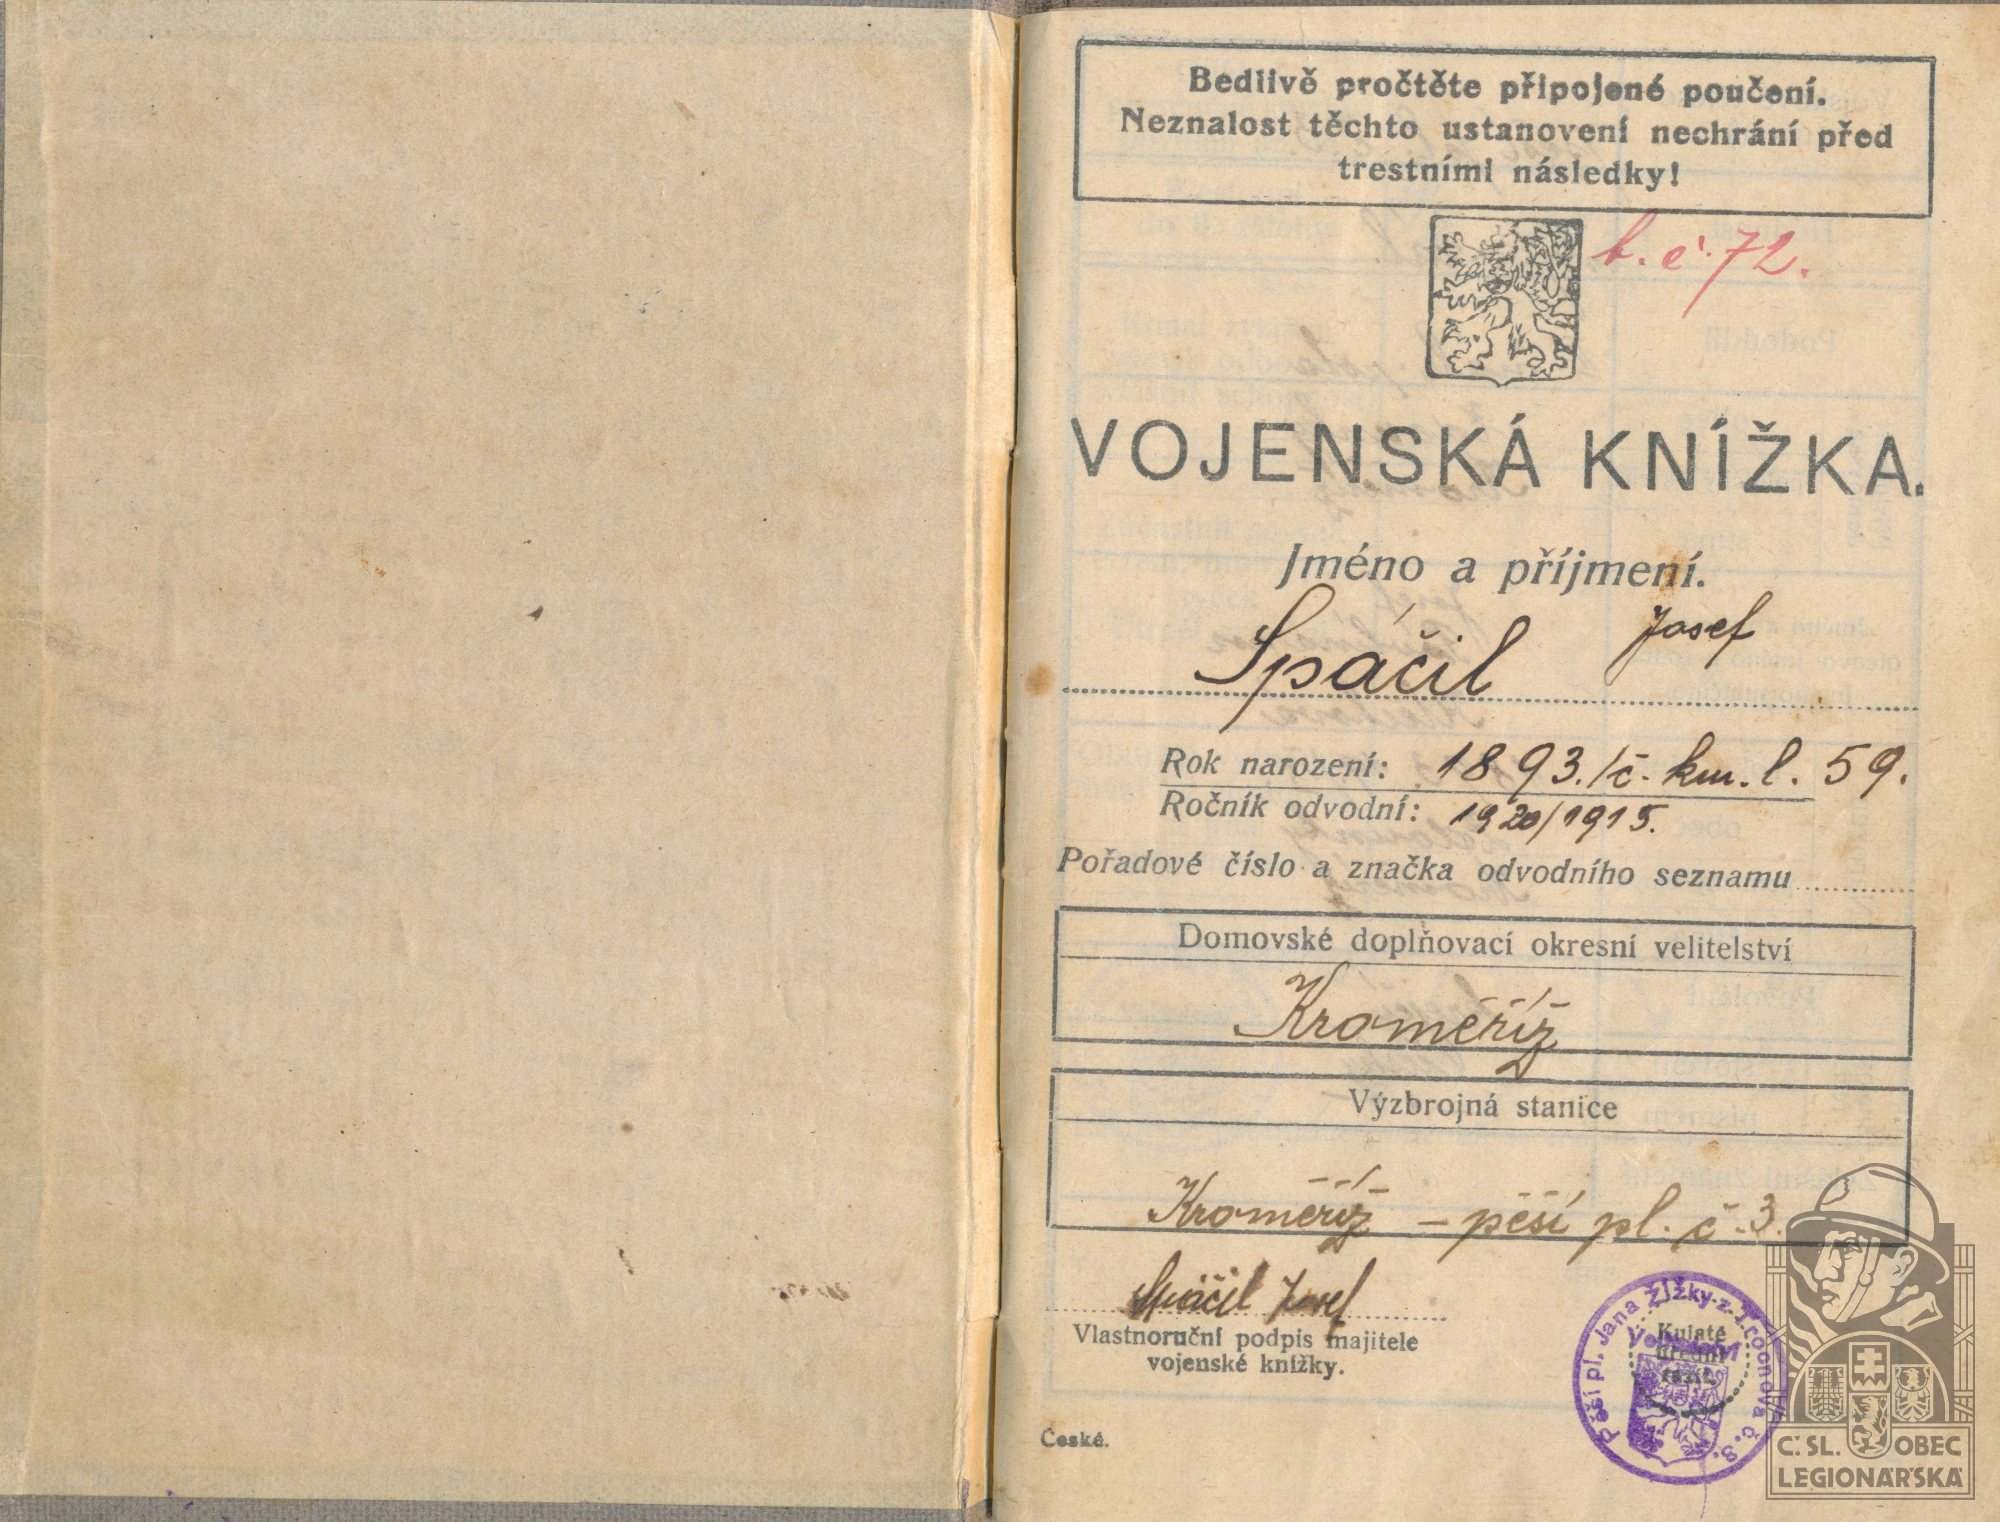 Bedlivě pročtěte připojené poučení.
Neznalost těchto ustanovení nechrání před
trestními následky!
b. č. 72.
VOJENSKÁ KNÍŽKA.
Jméno a příjmení.
Spáčil Josef
Rok narození: 1893./č. km. l. 59.
Ročník odvodní: 1920/1915.
Pořadové číslo a značka odvodního seznamu
Domovské doplňovací okresní velitelství
Kroměříž
Výzbrojná stanice
Kroměříž – pěší pl. č. 3.
Spáčil Josef
Vlastnoruční podpis majitele
vojenské knížky.
Pěší pl. Jana Žižky z Trocnova č. 3.
Velitelství
Kulaté
úřední
razít.
České.
Č. SL. OBEC
LEGIONÁŘSKÁ